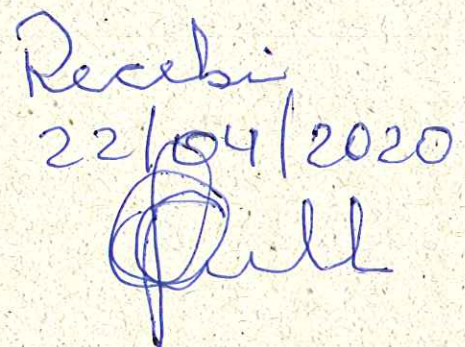 Recebi
22/04/2020